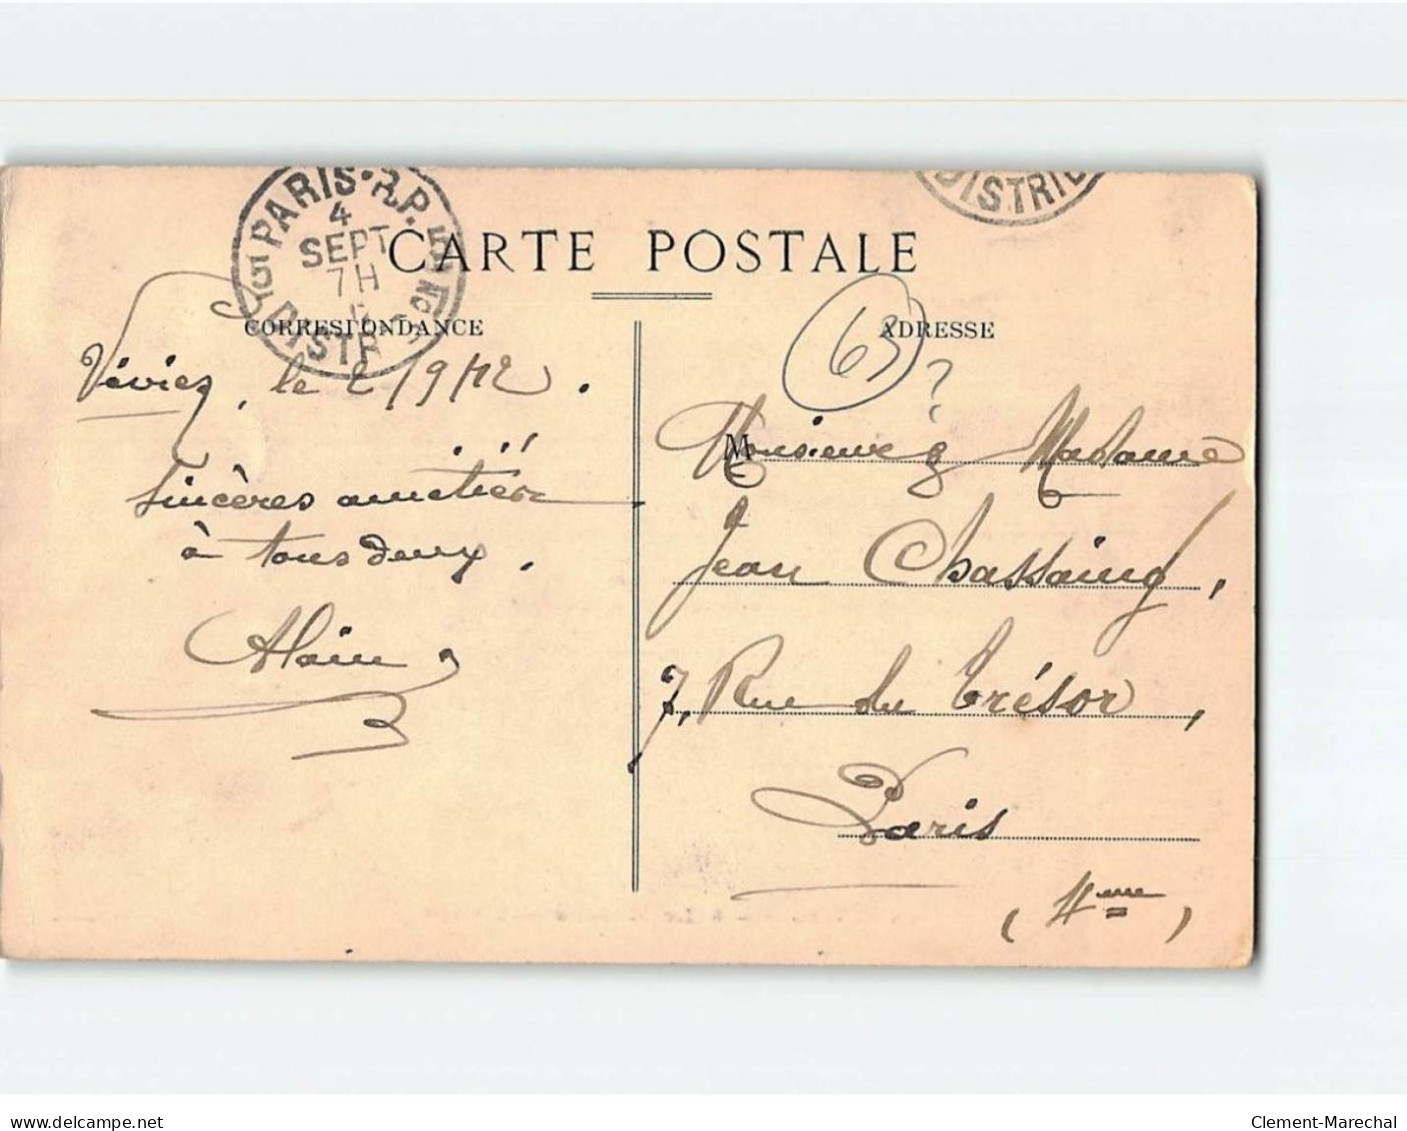 PARIS. R.P.
4
SEPT
7H
DISTR
DISTRIB
CARTE POSTALE
CORRESPONDANCE
ADRESSE
63
?
Viviez, le 2/9/12.
Sincères amitiés
à tous deux.
Alain
Monsieur & Madame
Jean Chassaing,
7, Rue du Trésor,
Paris
(4eme)
www.delcampe.net
Clement-Marechal